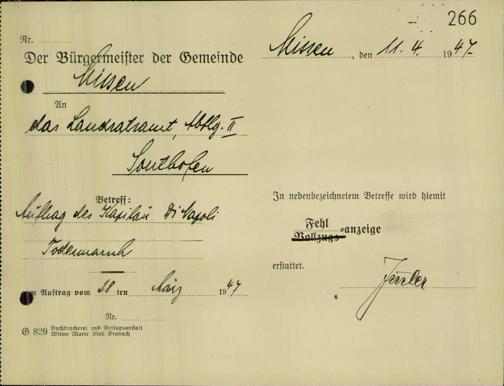 266
Nr.
Der Bürgermeister der Gemeinde
Missen
Missen, den 11. 4. 1947
An
das Landratsamt, Abtlg. II
Sonthofen
Betreff:
Auftrag des Kapitän Di Napoli
Todesmarsch
Zum Auftrag vom 28 ten März 1947
Nr.
G 829 Buchdruckerei und Verlagsanstalt
Witwe Marie Link Kronach
In nebenbezeichnetem Betreffe wird hiemit
Fehl
Vollzugs-anzeige
erstattet.